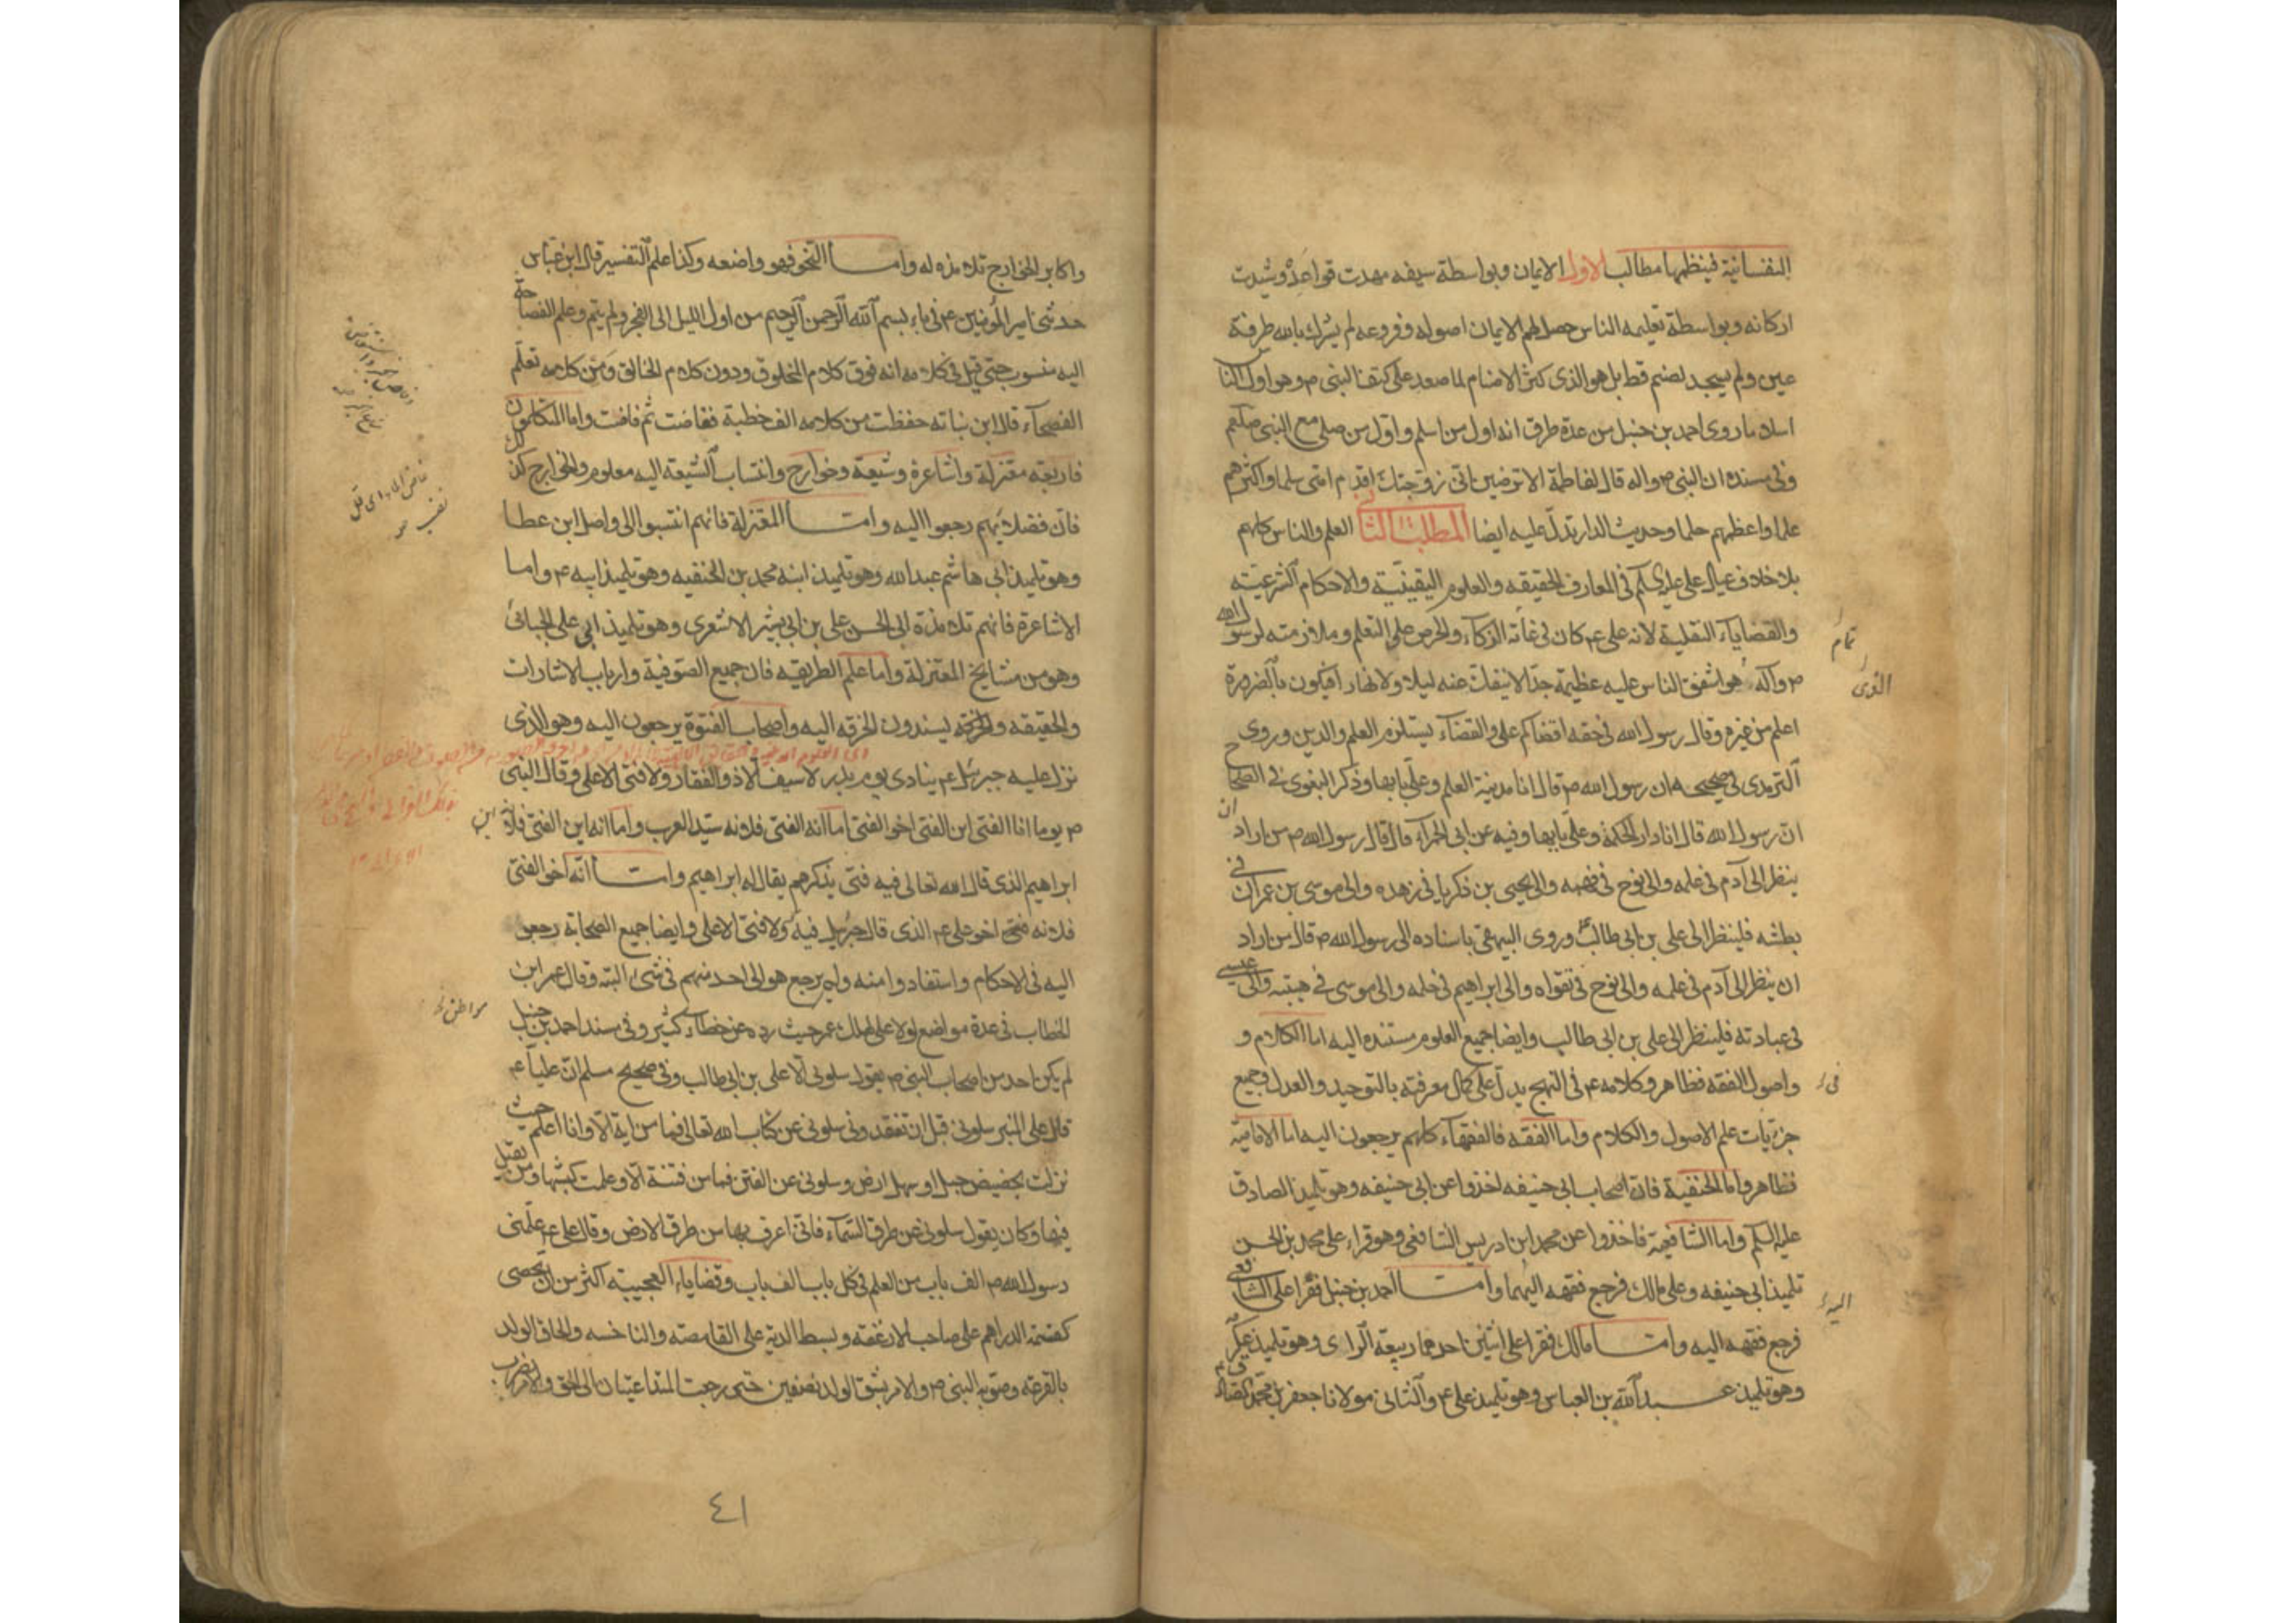 النفسانية فينظمها مطالب الاول الايمان وبواسطة سيفه مهدت قواعده وشيدت
اركانه وبواسطة تعليمه الناس حصل لهم الايمان اصوله وفروعه لم يشرك بالله طرفة
عين ولم يسجد لصنم قط بل هو الذى كسر الاصنام لما صعد على كتف النبى ص وهو اول الناس
اسلاما روى احمد بن حنبل من عدة طرق انه اول من اسلم واول من صلى مع النبى صلعم
وفى مسنده ان النبى ص واله قال لفاطمة الا ترضين انى زوجتك اقدم امتى سلما واكثرهم
علما واعظمهم حلما وحديث الدار تدل عليه ايضا المطلب الثانى العلم والناس كلهم
بلا خلاف عيال على على عليه السلم فى المعارف الحقيقه والعلوم اليقينية والاحكام الشرعيته
والقضاياء النقلية لانه على عم كان فى غاته الزكاء والحرص على التعلم وملازمته لرسول الله
ص وآله هو اشفق الناس عليه عظيمة جدا لا ينفك عنه ليلا ولا نهارا فيكون بالضرورة
اعلم من غيره وقال رسول الله فى حقه اقضاكم على والقضاء يستلزم العلم والدين وروى
الترمدى فى صحيحه ان رسول الله ص قال انا مدينة العلم وعلى بابها وذكر البغوى فى الصحاح
ان رسول الله قال انا دار الحكمة وعلى بابها وفيه عن ابى الحمراء قال قال رسول الله ص من اراد ان
ينظر الى آدم فى علمه والى نوح فى فهمه والى يحيى بن ذكريا فى زهده والى موسى بن عمران فى
بطشه فلينظر الى على بن ابى طالب وروى البيهقى باسناده الى رسول الله ص قال من اراد
ان ينظر الى آدم فى علمه والى نوح فى تقواه والى ابراهيم فى حلمه والى موسى فى هيبته والى عيسى
فى عبادته فلينظر الى على بن ابى طالب وايضا جميع العلوم مستنده اليه اما الكلام و
واصول الفقه فظاهر وكلامه عم فى النهج يدل على كمال معرفته بالتوحيد والعدل وجميع
جزئيات علم الاصول والكلام واما الفقه فالفقهاء كلهم يرجعون اليه اما الامامية
فظاهر واما الحنفية فان اصحاب ابى حنيفه اخذوا عن ابى حنيفه وهو تلميذ الصادق
عليه السلم واما الشافعية فاخذوا عن محمد ابن ادريس الشافعى وهو قراء على محمد بن الحسن
تلميذ ابى حنيفه وعلى مالك فرجع فقهه اليهما وامـــا احمد بن حنبل فقرا على الشافعى
فرجع فقهه اليه وامـــا مالك فقرا على اثنين احدهما ربيعة الراى وهو تلميذ عكرمه
وهو تلميذ عبد الله بن العباس وهو تلميذ على عم والثانى مولانا جعفر بن محمد الصادق عم
تمام
الذى
فى
اليه
واكابر الخوارج تلامذه له وامـــا النحو فهو واضعه وكذا علم التفسير قال ابن عباس
حدثنى امير المؤمنين عم فى باء بسم الله الرحمن الرحيم من اول الليل الى الفجر ولم يتم وعلم الفصاحة
اليه منسوب حتى قيل فى كلامه انه فوق كلام المخلوق ودون كلام الخالق ومن كلامه تعلم
الفصحاء قال ابن نباته حفظت من كلامه الف خطبة ففاضت ثم فاضت واما المتكلمون
فاربعه معتزلة واشاعرة وشيعة وخوارج وانتساب الشيعته اليه معلوم والخوارج كذلك
فان فضلائهم رجعوا اليه وامـــا المعتزلة فانهم انتسبوا الى واصل ابن عطا
وهو تلميذ ابى هاشم عبد الله وهو تلميذ ابنه محمد بن الحنفيه وهو تلميذ ابيه عم واما
الاشاعرة فانهم تلامذة ابى الحسن على بن ابى بشر الاشعرى وهو تلميذ ابى على الجبائى
وهو من مشايخ المعتزلة واما علم الطريقه فان جميع الصوفية وارباب الاشارات
والحقيقه والخرقه يسندون الخرقه اليه واصحاب الفتوة يرجعون اليه وهو الذى
نزل عليه جبرئيل عم ينادى يوم بدر لا سيف الا ذو الفقار ولا فتى الا على وقال النبى
ص يوما انا الفتى ابن الفتى اخو الفتى اما انه الفتى فلانه سيد العرب واما انه ابن الفتى فلانه ابن
ابراهيم الذى قال الله تعالى فيه فتى يذكرهم يقال له ابراهيم وامـــا انه اخو الفتى
فلانه اخو على عم الذى قال جبرئيل فيه ولا فتى الا على وايضا جميع الصحابة رجعوا
اليه فى الاحكام واستفادوا منه ولم يرجع هو الى احد منهم فى شىء البته وقال عمر ابن
الخطاب فى عدة مواضع لولا على لهلك عمر حيث رده عن خطاء كثير وفى مسند احمد بن حنبل
لم يكن احد من اصحاب النبى ص يقول سلونى الا على بن ابى طالب وفى صحيح مسلم ان عليا عم
قال على المنبر سلونى قبل ان تفقدونى سلونى عن كتاب الله تعالى فما من اية الا وانا اعلم حيث
نزلت بحضيض جبل او سهل ارض وسلونى عن الفتن فما من فتنة الا وعلمت كبشها ومن يقتل
فيها وكان يقول سلونى عن طرق السماء فانى اعرف بها من طرق الارض وقال على عم علمنى
رسول الله ص الف باب من العلم فى كل باب الف باب وقضاياء العجيبته اكثر من ان تحصى
كقسمة الدراهم على صاحب الارغفة وبسط الدية على القامصته والناخسه والحاق الولد
بالقرعه وصوبه النبى ص والامر بشق الولد نصفين حتى رجعت المتداعيتان الى الحق والامر بضرب
مواطن
٤١